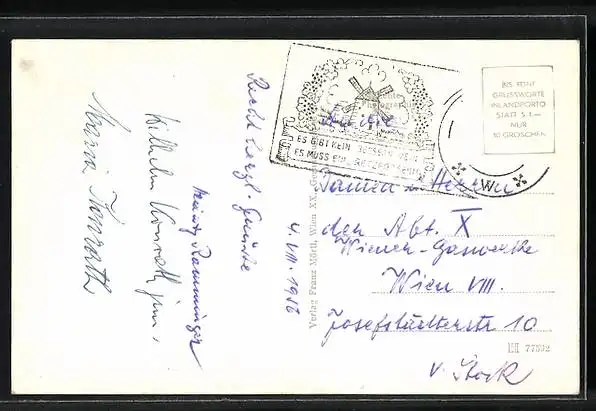 Recht herzl. Grüsse
4. VIII. 1956
Heinz Ramminger
Wilhelm Konrath jun.
Maria Konrath
Verlag Franz Mörtl, Wien XX,
ES GIBT KEIN
ES MUSS EIN
BIS FÜNF
GRUSSWORTE
INLANDPORTO
STATT S 1.—
NUR
70 GROSCHEN
An die
Damen u. Herren
der Abt. X
Wiener-Gaswerke
Wien VIII.
Josefstädterstr 10
v. Stock
77532